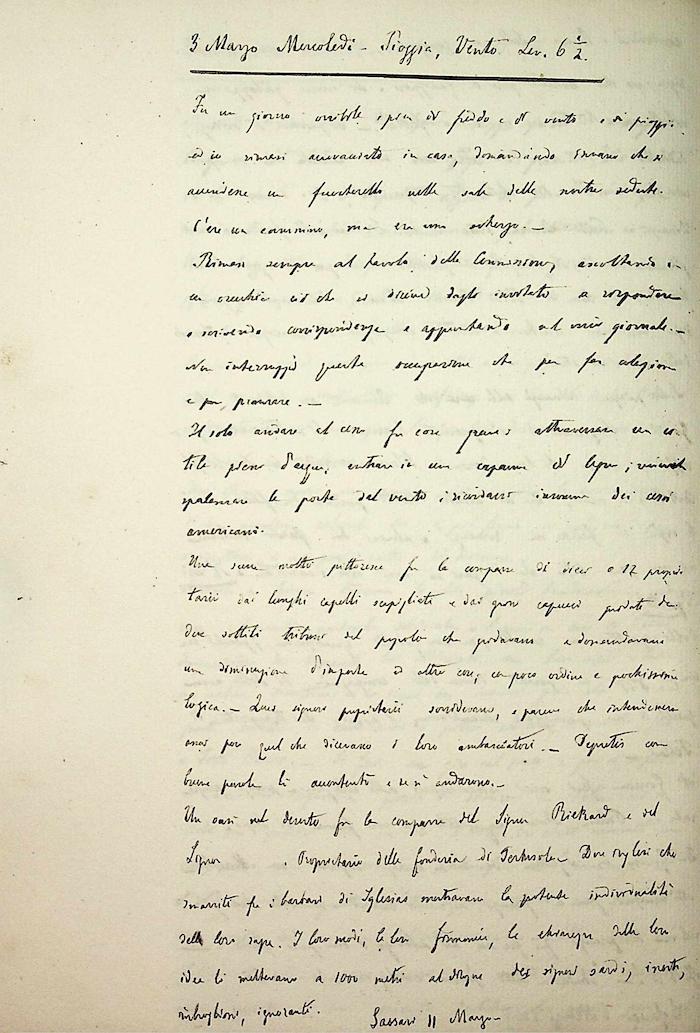 3 Marzo Mercoledì - Pioggia, Vento Lev. 6 1/2.
Fu un giorno orribile, pien di freddo e di vento e di pioggia
ed io rimasi accovacciato in casa, domandando invano che si
accendesse un fuocherello nelle sale delle nostre sedute.
C'era un cammino, ma era uno scherzo. -
Rimasi sempre al tavolo della Commissione, ascoltando
un orecchio ciò che si diceva dagli invitati a rispondere
o scrivendo corrispondenze e appuntando al mio giornale. -
Non interruppi queste occupazione che per far colezione
e per pranzare. -
Il solo andare al cesso fu cosa grave: attraversare un cor
tile pieno d'acqua, entrare in una capanna di legno;
spalancare le porte dal vento; ricordarsi insomma dei cessi
americani.
Una scena molto pittoresca fu la comparsa di dieci o 12 proprie
tarii dai lunghi capelli scapigliati e dai grossi cappucci guidati da
due sottili tribuni del popolo che gridavano e domandavano
una diminuzione d'imposte ed altre cose, con poco ordine e pochissima
logica. - Quei signori proprietarii sorridevano, e pareva che intendessero
assai poco quel che dicevano i loro ambasciatori. - Depretis con
buone parole li accontentò e se ne andarono. -
Un oasi nel deserto fu la comparsa del Signor Rickard e del
Signor . Proprietario della fonderia di Pertusola - Due inglesi che
smarriti fra i barbari di Iglesias mostravano la potente individualità
della loro razza. I loro modi, la loro fisonomia, la chiarezza delle loro
idee li mettevano a 1000 metri al disopra dei signori sardi, inerti,
imbroglioni, ignoranti. Sassari 11 Marzo -